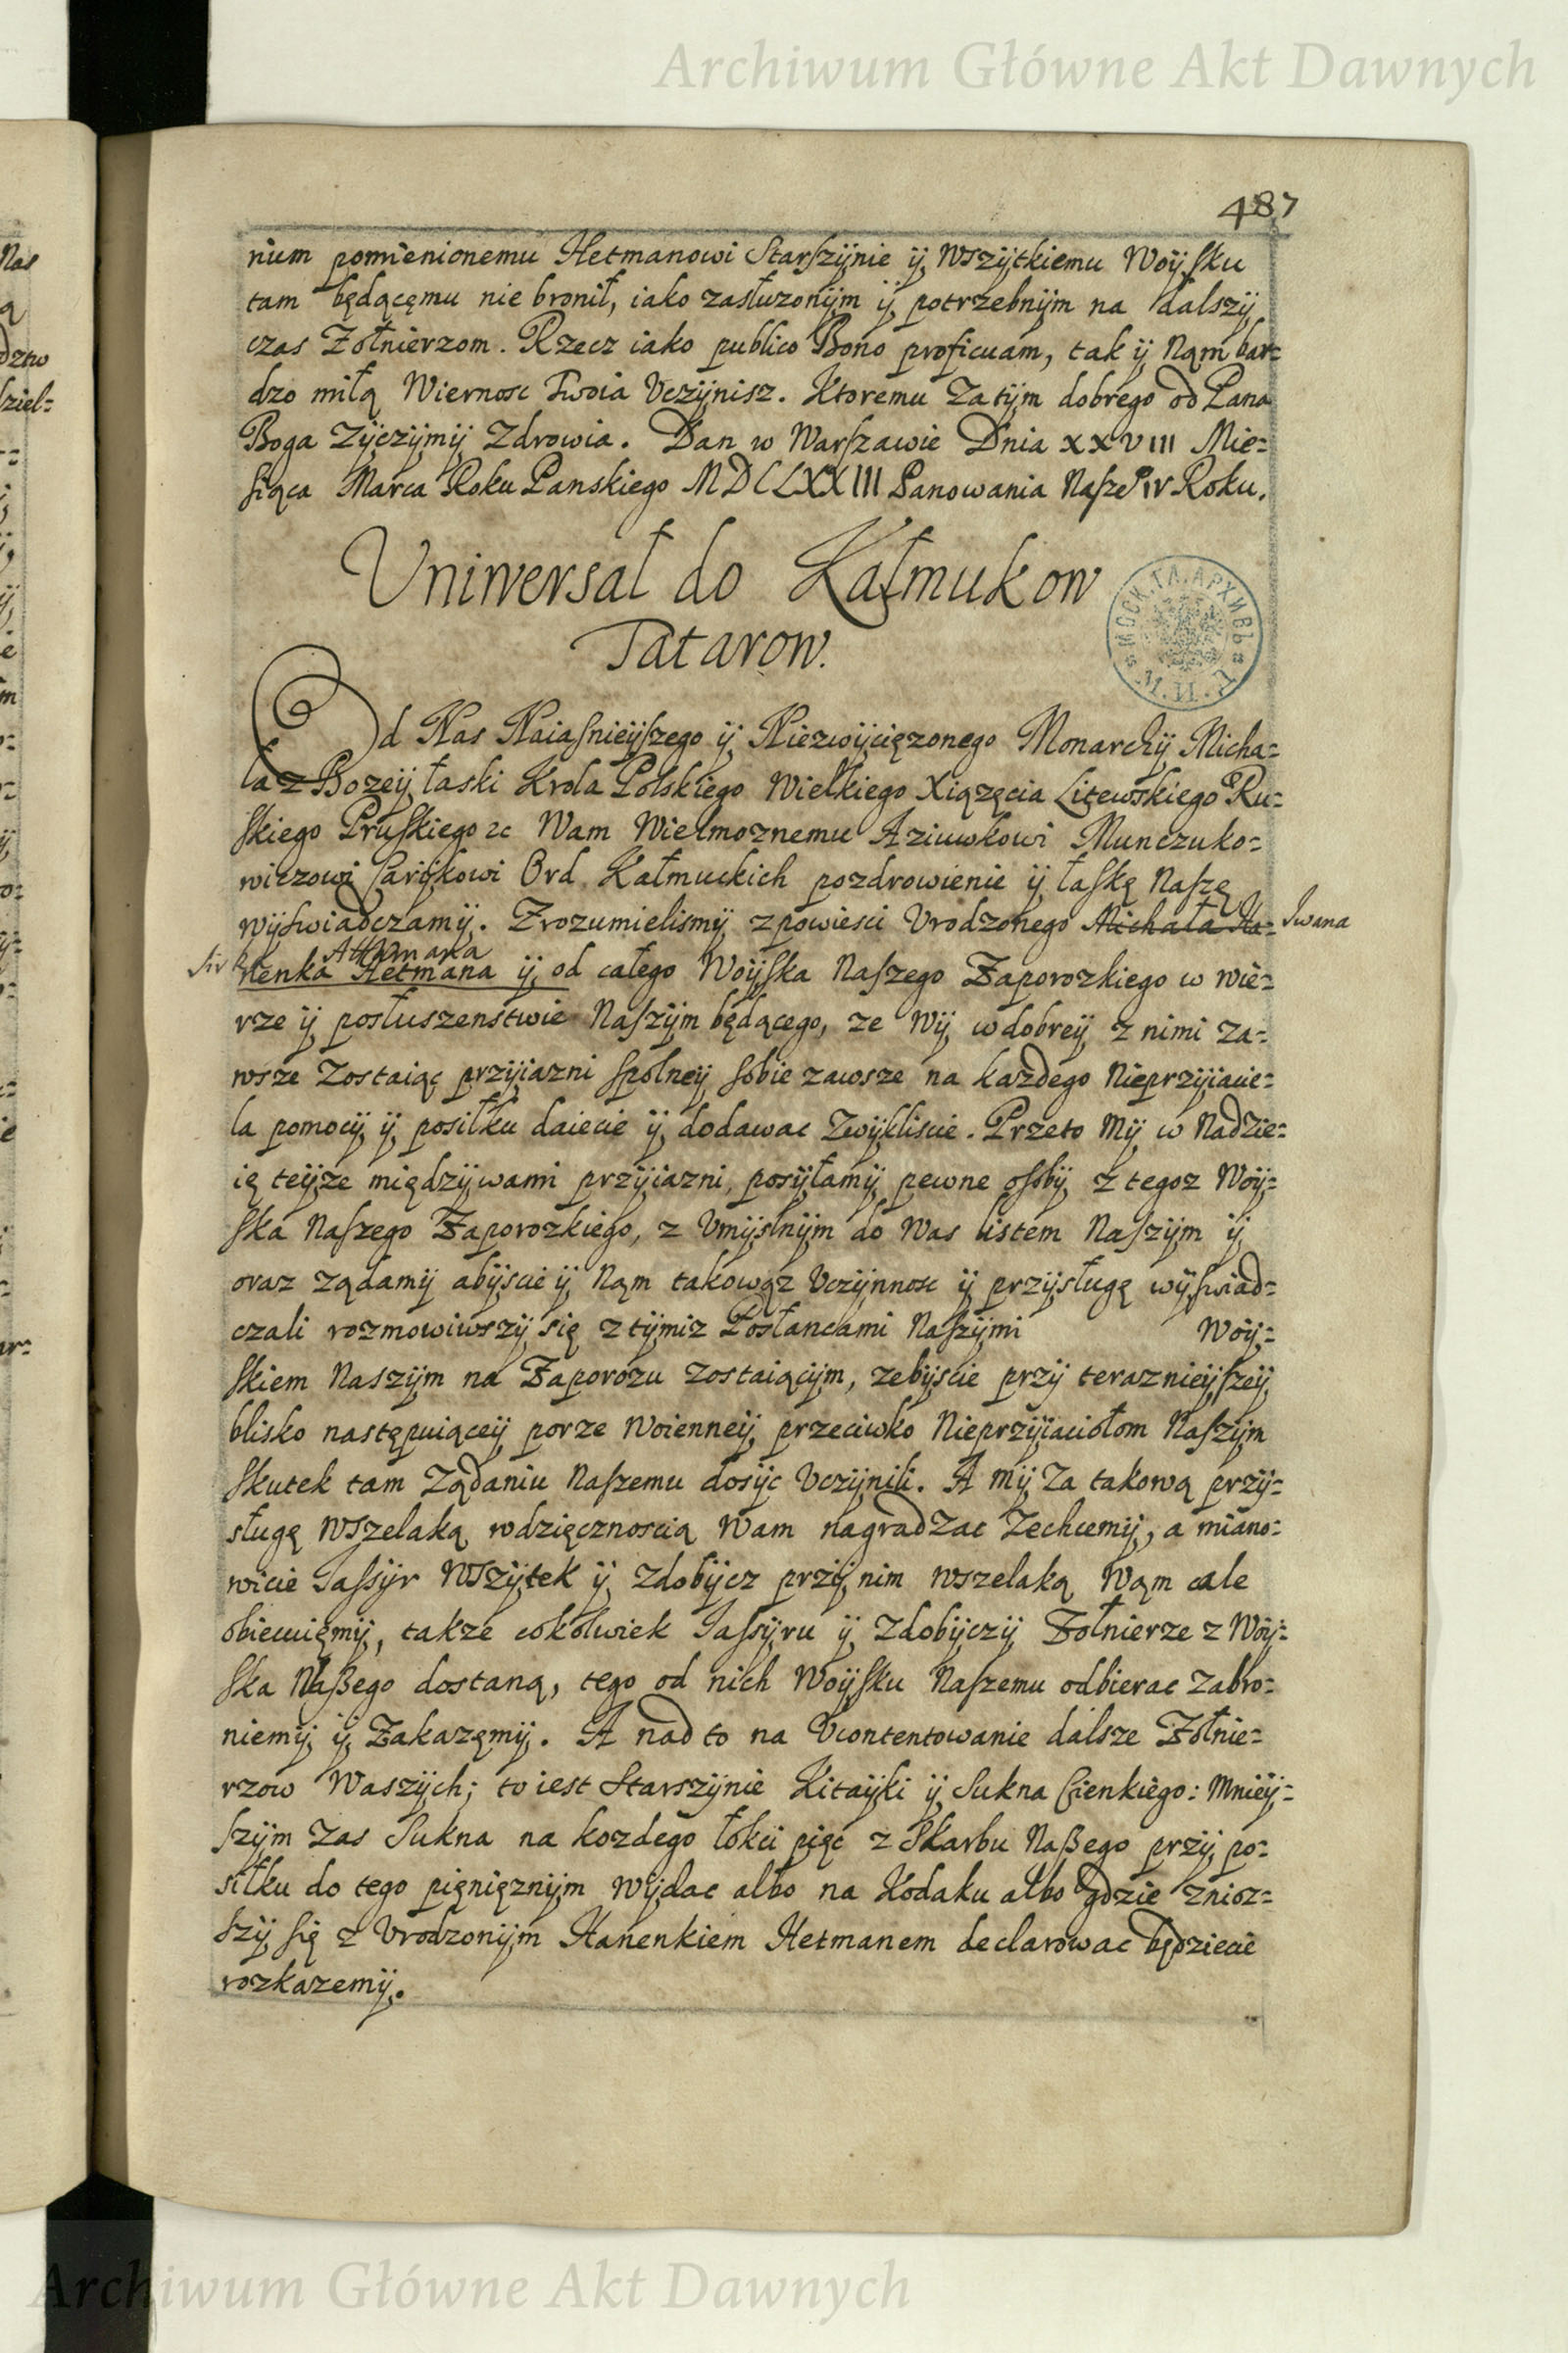 Archiwum Główne Akt Dawnych
487
nium pomienionemu Hetmanowi Starszÿnie ÿ Wszÿtkiemu Woÿsku
tam będącęmu nie bronił, iako zasłuzonÿm ÿ potrzebnÿm na dalszÿ
czas Zołnierzom. Rzecz iako publico Bono proficuam, tak ÿ Nąm bar=
dzo miłą Wiernosc Twoia Vczÿnisz. Ktoremu Zatÿm dobrego od Pana
Boga Zÿczÿmÿ Zdrowia. Dan w Warszawie Dnia XXVIII Mie=
siąca Marca Roku Panskiego MDCLXXIII Panowania Nasze° IV Roku.
Vniwersał do Kałmukow
Tatarow.
МОСК.ГЛ.АРХИВЪ
Od Nas Naiasnieÿszego ÿ Niezwÿcięzonego Monarchÿ Micha=
ła z Bozeÿ łaski Krola Polskiego Wielkiego Xiązęcia Litewskiego Ru=
skiego Pruskiego &c Wam Wielmoznemu Aziuwkowi Munczuko=
wiczowi Carÿkowi Ord Kałmuckich pozdrowienie ÿ łaskę Naszę
wÿswiadczamÿ. Zrozumielismÿ z powiesci Vrodzonego Michała Ha= Iwana
Sirka Atthamana
nenka Hetmana ÿ od całego Woÿska Naszego Zaporozkiego w wie=
rze ÿ posłuszenstwie Naszÿm będącego, ze Wÿ w dobreÿ z nimi za=
wsze Zostaiąc przÿiazni spolneÿ sobie zawsze na kazdego Nieprzÿiacie=
la pomocÿ ÿ posiłku daiecie ÿ dodawac Zwÿkliscie. Przeto Mÿ w Nadzie=
ię teÿze międzÿ wami przÿiazni, posÿłamÿ pewne osobÿ z tegoz Woÿ=
ska Naszego Zaporozkiego, z Vmÿslnÿm do Was listem Naszÿm ÿ
oraz ządamÿ abÿscie ÿ Nąm takowąz Vczÿnnosc ÿ przÿsługę wÿswiad=
czali rozmowiwszÿ się z tÿmiz Posłancami Naszÿmi Woÿ=
skiem Naszÿm na Zaporozu zostaiącÿm, zebÿscie przÿ teraznieÿszeÿ
blisko następuiąceÿ porze Woienneÿ przeciwko Nieprzÿiaciołom Naszÿm
skutek tam Ządaniu Naszemu dosÿc Vczÿnili. A mÿ Za takową przÿ=
sługę Wszelaką wdzięcznoscią Wam nagradzac Zechcemÿ, a miano=
wicie Jassÿr Wszÿtek ÿ zdobÿcz przÿ nim wszelaką Wąm cale
obiecuięmÿ, takze cokolwiek Jassÿru ÿ Zdobÿczÿ Zołnierze z Woÿ=
ska Naßego dostaną, tego od nich Woÿsku Naszemu odbierac Zabro=
niemÿ ÿ Zakazęmÿ. A nad to na Vcontentowanie dalsze Zołnie=
rzow Waszÿch; to iest Starszÿnie Kitaÿki ÿ Sukna Cienkiego: Mnieÿ=
szÿm Zas Sukna na kozdego łokci pięc z Skarbu Naßego przÿ po=
siłku do tego pięnięznÿm Wÿdac albo na Kodaku albo gdzie Zniosz=
szÿ się z Vrodzonÿm Hanenkiem Hetmanem declarowac będziecie
rozkazemÿ.
Archiwum Główne Akt Dawnych